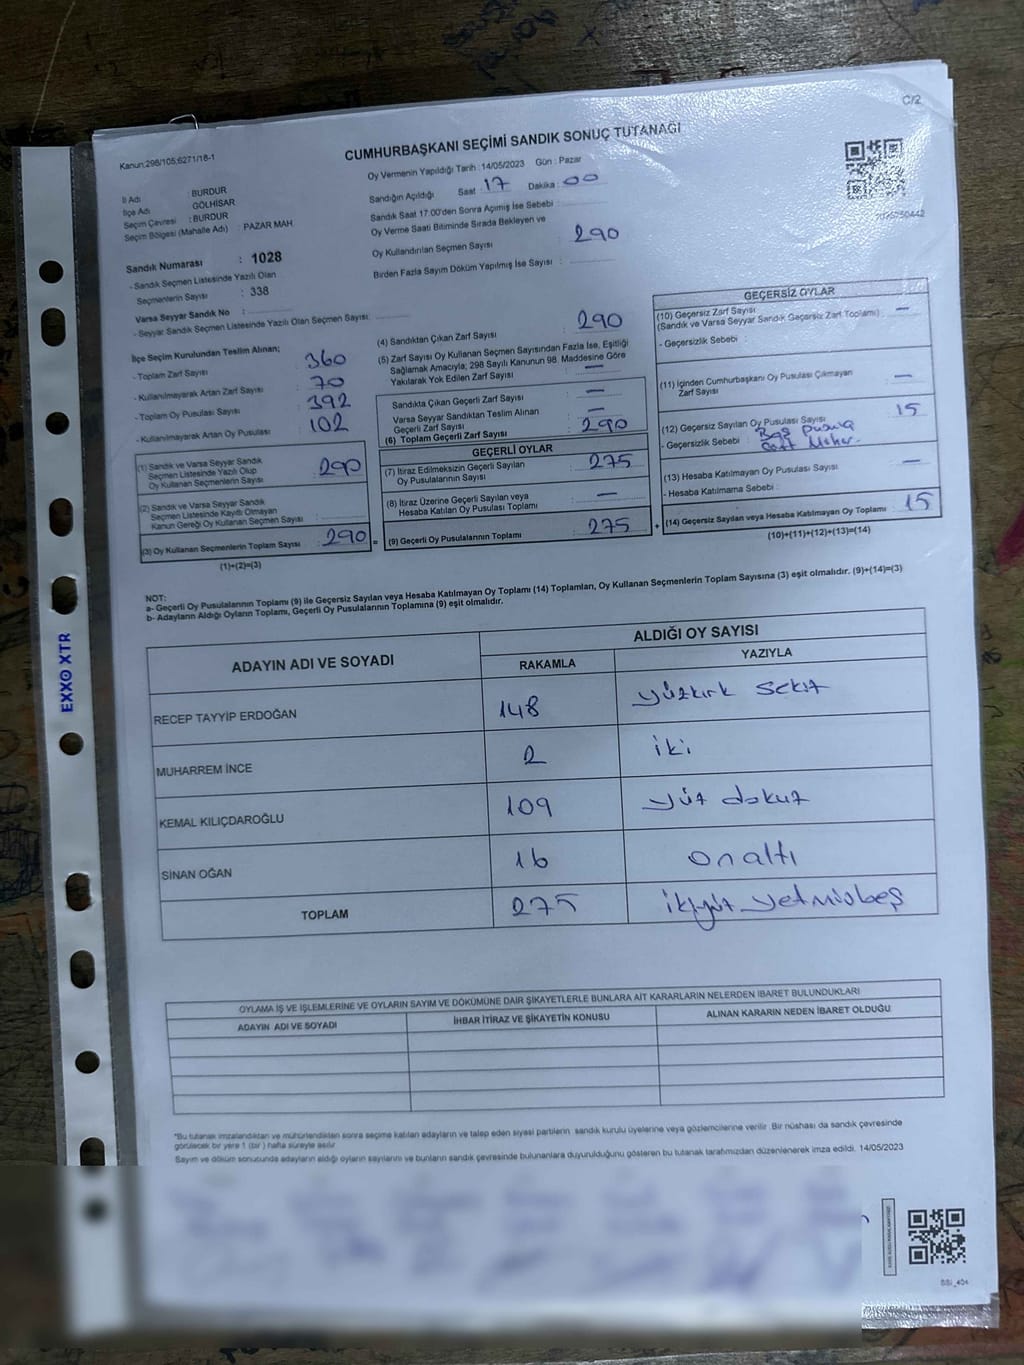 C/2
CUMHURBAŞKANI SEÇİMİ SANDIK SONUÇ TUTANAĞI
Kanun:298/105;6271/18-1
Oy Vermenin Yapıldığı Tarih : 14/05/2023 Gün : Pazar
İl Adı : BURDUR
İlçe Adı GÖLHİSAR
Seçim Çevresi : BURDUR
Seçim Bölgesi (Mahalle Adı) : PAZAR MAH
Sandığın Açıldığı Saat : 17 Dakika : 00
Sandık Saat 17:00'den Sonra Açımış İse Sebebi :
Oy Verme Saati Bitiminde Sırada Bekleyen ve
Oy Kullandırılan Seçmen Sayısı : 290
Birden Fazla Sayım Döküm Yapılmış İse Sayısı :
Sandık Numarası : 1028
- Sandık Seçmen Listesinde Yazılı Olan
Seçmenlerin Sayısı : 338
Varsa Seyyar Sandık No :
- Seyyar Sandık Seçmen Listesinde Yazılı Olan Seçmen Sayısı:
İlçe Seçim Kurulundan Teslim Alınan;
- Toplam Zarf Sayısı 360
- Kullanılmayarak Artan Zarf Sayısı 70
- Toplam Oy Pusulası Sayısı 392
- Kullanılmayarak Artan Oy Pusulası 102
(1) Sandık ve Varsa Seyyar Sandık
Seçmen Listesinde Yazılı Olup
Oy Kullanan Seçmenlerin Sayısı : 290
(2) Sandık ve Varsa Seyyar Sandık
Seçmen Listesinde Kayıtlı Olmayan
Kanun Gereği Oy Kullanan Seçmen Sayısı :
(3) Oy Kullanan Seçmenlerin Toplam Sayısı : 290 =
(1)+(2)=(3)
(4) Sandıktan Çıkan Zarf Sayısı : 290
(5) Zarf Sayısı Oy Kullanan Seçmen Sayısından Fazla İse, Eşitliği
Sağlamak Amacıyla; 298 Sayılı Kanunun 98. Maddesine Göre
Yakılarak Yok Edilen Zarf Sayısı : —
Sandıkta Çıkan Geçerli Zarf Sayısı : —
Varsa Seyyar Sandıktan Teslim Alınan
Geçerli Zarf Sayısı : —
(6) Toplam Geçerli Zarf Sayısı : 290
GEÇERLİ OYLAR
(7) İtiraz Edilmeksizin Geçerli Sayılan
Oy Pusulalarının Sayısı : 275
(8) İtiraz Üzerine Geçerli Sayılan veya
Hesaba Katılan Oy Pusulası Toplamı : —
(9) Geçerli Oy Pusulalarının Toplamı : 275 +
GEÇERSİZ OYLAR
(10) Geçersiz Zarf Sayısı
(Sandık ve Varsa Seyyar Sandık Geçersiz Zarf Toplamı) : —
- Geçersizlik Sebebi :
(11) İçinden Cumhurbaşkanı Oy Pusulası Çıkmayan
Zarf Sayısı : —
(12) Geçersiz Sayılan Oy Pusulası Sayısı : 15
- Geçersizlik Sebebi :
(13) Hesaba Katılmayan Oy Pusulası Sayısı : —
- Hesaba Katılmama Sebebi :
(14) Geçersiz Sayılan veya Hesaba Katılmayan Oy Toplamı : 15
(10)+(11)+(12)+(13)=(14)
NOT:
a- Geçerli Oy Pusulalarının Toplamı (9) ile Geçersiz Sayılan veya Hesaba Katılmayan Oy Toplamı (14) Toplamları, Oy Kullanan Seçmenlerin Toplam Sayısına (3) eşit olmalıdır. (9)+(14)=(3)
b- Adayların Aldığı Oyların Toplamı, Geçerli Oy Pusulalarının Toplamına (9) eşit olmalıdır.
ADAYIN ADI VE SOYADI ALDIĞI OY SAYISI
RAKAMLA YAZIYLA
RECEP TAYYİP ERDOĞAN 148 yüzkırk sekiz
MUHARREM İNCE 2 iki
KEMAL KILIÇDAROĞLU 109 yüz dokuz
SİNAN OĞAN 16 onaltı
TOPLAM 275 ikiyüz yetmişbeş
OYLAMA İŞ VE İŞLEMLERİNE VE OYLARIN SAYIM VE DÖKÜMÜNE DAİR ŞİKAYETLERLE BUNLARA AİT KARARLARIN NELERDEN İBARET BULUNDUKLARI
ADAYIN ADI VE SOYADI İHBAR İTİRAZ VE ŞİKAYETİN KONUSU ALINAN KARARIN NEDEN İBARET OLDUĞU
*Bu tutanak imzalandıktan ve mühürlendikten sonra seçime katılan adayların ve talep eden siyasi partilerin sandık kurulu üyelerine veya gözlemcilerine verilir. Bir nüshası da sandık çevresinde
görülecek bir yere 1 (bir) hafta süreyle asılır
Sayım ve döküm sonucunda adayların aldığı oyların sayılarını ve bunların sandık çevresinde bulunanlara duyurulduğunu gösteren bu tutanak tarafımızdan düzenlenerek imza edildi. 14/05/2023
EXXO XTR